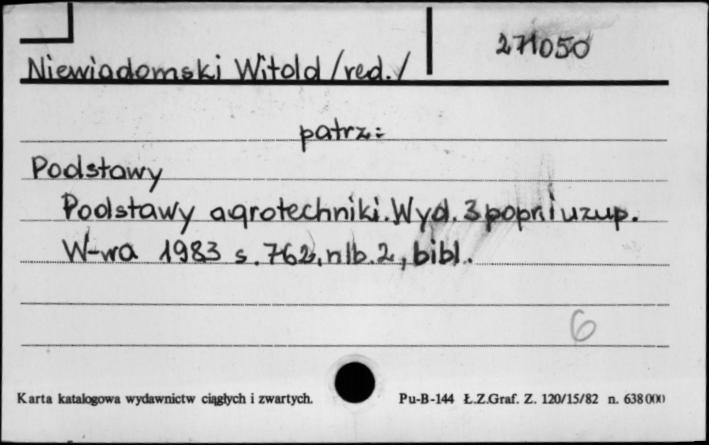 271050
Niewiadomski Witold /red./
patrz:
Podstawy
Podstawy agrotechniki. Wyd. 3 popr. i uzup.
W-wa 1983 s. 762, nlb. 2, bibl.
6
Karta katalogowa wydawnictw ciągłych i zwartych.
Pu-B-144 Ł.Z.Graf. Z. 120/15/82 n. 638000